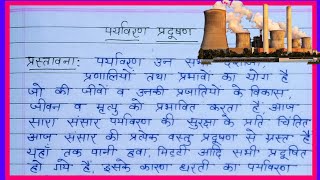 पर्यावरण प्रदूषण
प्रस्तावना: पर्यावरण उन सभी
प्रणालियों तथा प्रभावों का योग है
जो की जीवों व उनकी प्रजातियों के विकास,
जीवन व मृत्यु को प्रभावित करता है आज
सारा संसार पर्यावरण की सुरक्षा के प्रति चिंतित
आज संसार की प्रत्येक वस्तु प्रदूषण से ग्रस्त है
यहाँ तक पानी हवा, मिट्टी आदि सभी प्रदूषित
हो गये है, इसके कारण धरती का पर्यावरण